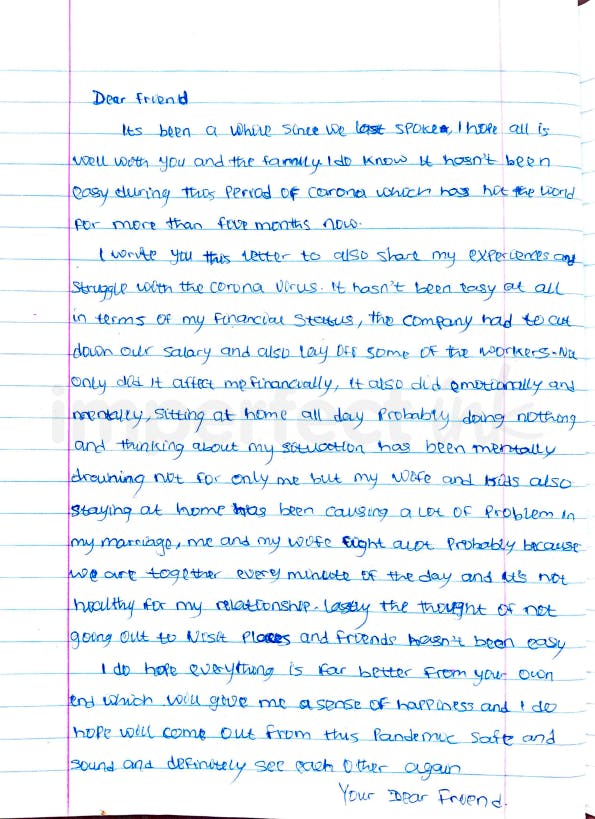 Dear Friend
Its been a while since we last spoke, I hope all is
well with you and the family. I do know it hasn't been
easy during this period of corona which has hit the world
for more than five months now.
I write you this letter to also share my experiences and
struggle with the corona virus. It hasn't been easy at all
in terms of my financial status, the company had to cut
down our salary and also lay off some of the workers. Not
only did it affect me financially, it also did emotionally and
mentally, sitting at home all day probably doing nothing
and thinking about my situation has been mentally
drowning not for only me but my wife and kids also
staying at home has been causing a lot of problem in
my marriage, me and my wife fight alot probably because
we are together every minute of the day and it's not
healthy for my relationship. lastly the thought of not
going out to visit places and friends hasn't been easy
I do hope everything is far better from your own
end which will give me a sense of happiness and I do
hope will come out from this pandemic safe and
sound and definitely see each other again
Your Dear Friend.
imperfect ink